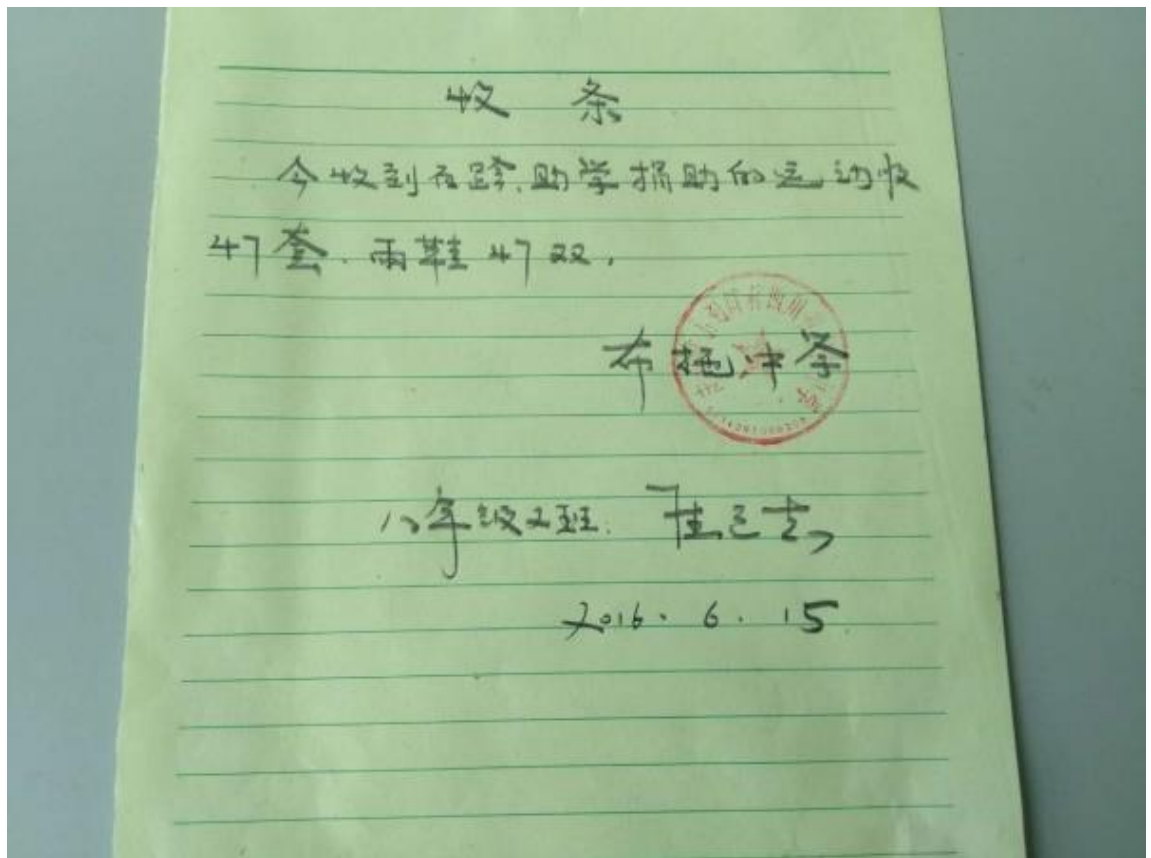 收 条
今收到在路.助学捐助的运动服
47套.雨鞋47双.
布拖中学
八年级2班.
2016.6.15